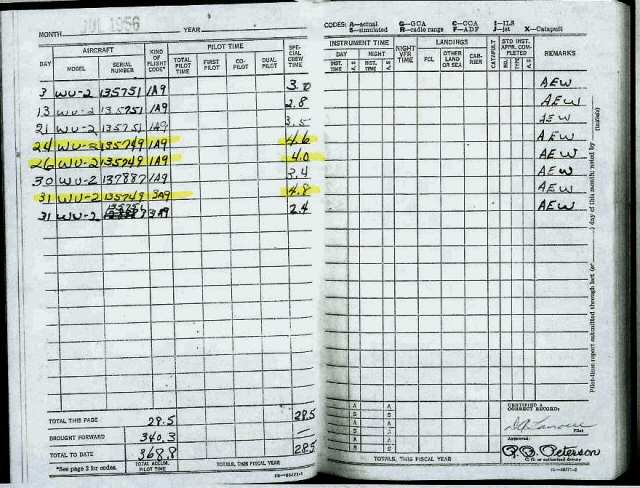 MONTH JUL 1956 YEAR
AIRCRAFT PILOT TIME
DAY MODEL SERIAL NUMBER KIND OF FLIGHT CODE* TOTAL PILOT TIME FIRST PILOT CO-PILOT DUAL PILOT SPECIAL CREW TIME
3 WV-2 135751 1A9 3.0
13 WV-2 135751 1A9 2.8
21 WV-2 135751 1A9 3.5
24 WV-2 135749 1A9 4.6
26 WV-2 135749 1A9 4.0
30 WV-2 137887 1A9 3.4
31 WV-2 135749 3A9 4.8
31 WV-2 135751 3A9 2.4
TOTAL THIS PAGE 28.5 28.5
BROUGHT FORWARD 340.3 —
TOTAL TO DATE 368.8 28.5
*See page 2 for codes. TOTAL ACCUM. PILOT TIME TOTALS, THIS FISCAL YEAR
CODES: A—actual G—GCA C—CCA I—ILS
S—simulated R—radio range F—ADF J—jet X—Catapult
INSTRUMENT TIME NIGHT VFR TIME LANDINGS CATAPULT STD INST. APPR. COMPLETED REMARKS
DAY NIGHT FCL OTHER LAND OR SEA CARRIER NO. TYPE A S
INST. TIME A S INST. TIME A S
AEW
AEW
AEW
AEW
AEW
AEW
AEW
AEW
Pilot-time report submitted through last (or) day of this month; noted by (initials)
A A
S S
A A
S S
A A
S S
CERTIFIED A CORRECT RECORD:
Pilot
Approved:
Peterson
C. O. or authorized deputy
TOTALS, THIS FISCAL YEAR